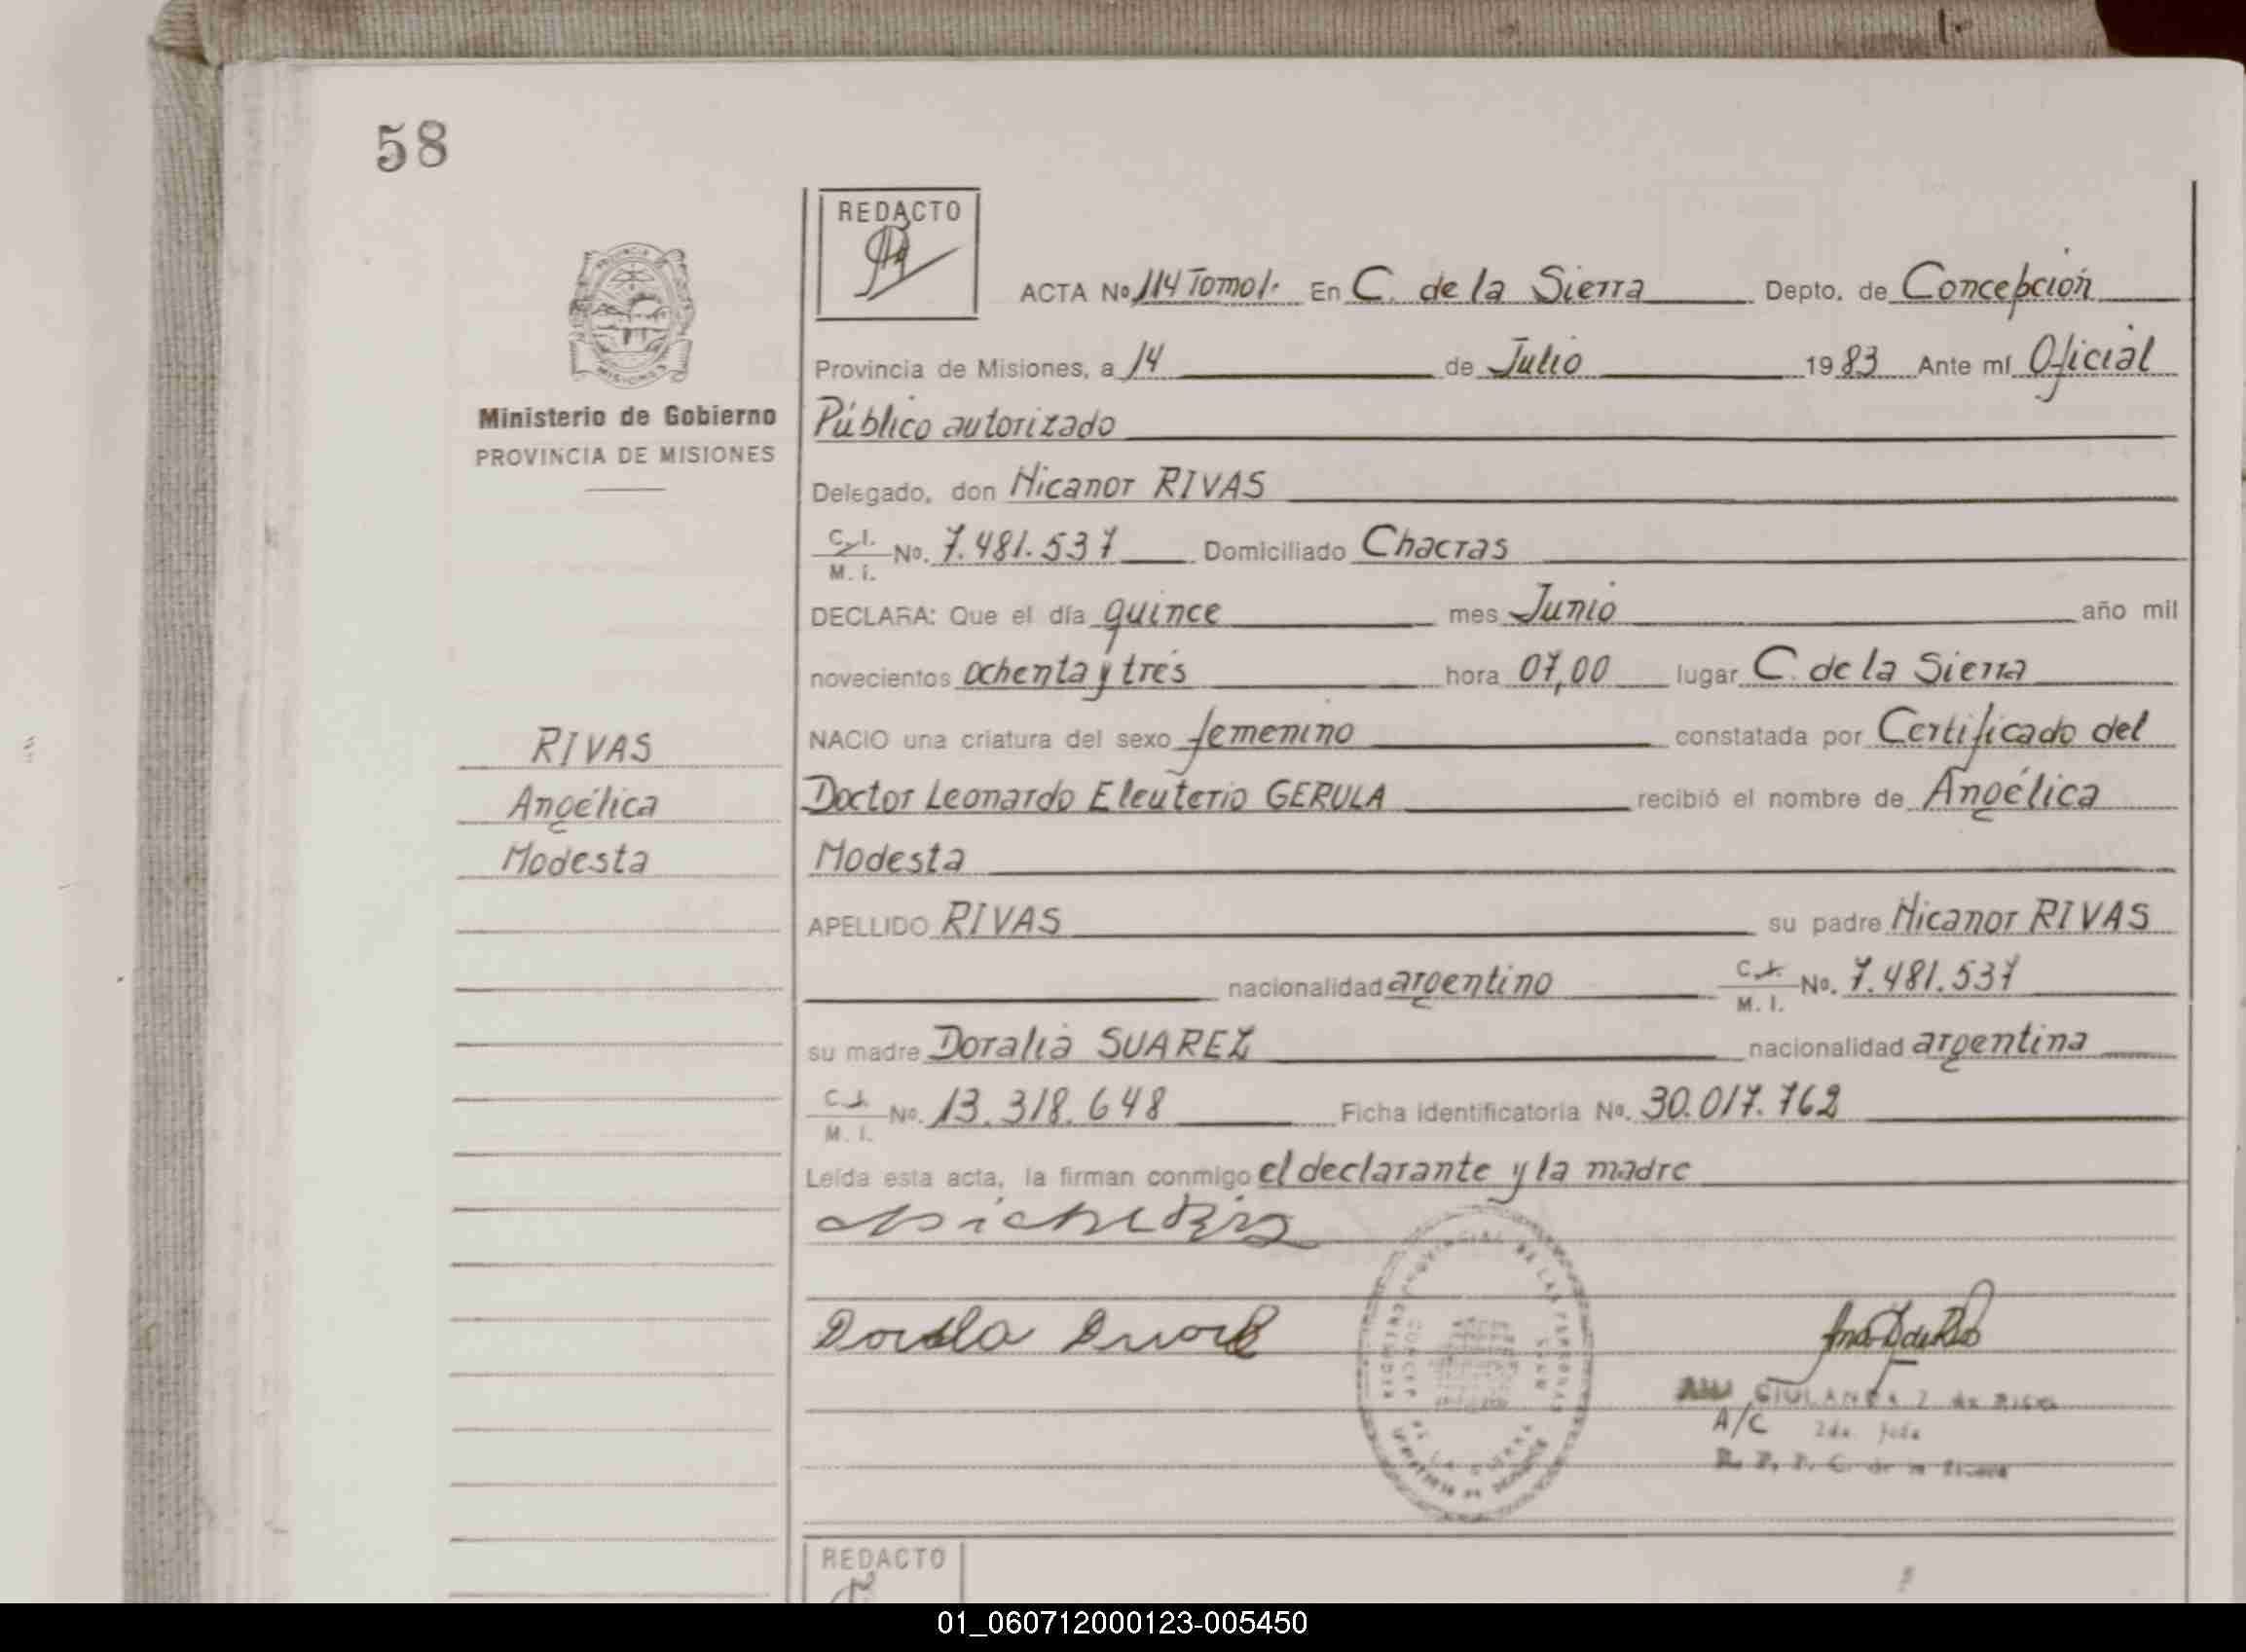 58
REDACTO
ACTA No 114 Tomo 1. En C. de la Sierra Depto. de Concepción
Provincia de Misiones, a 14 de Julio 1983 Ante mí Oficial
Ministerio de Gobierno
Público autorizado
PROVINCIA DE MISIONES
Delegado, don Nicanor RIVAS
C.I. M.I. No. 7.481.537 Domiciliado Chacras
DECLARA: Que el día quince mes Junio año mil
novecientos ochenta y tres hora 07,00 lugar C. de la Sierra
RIVAS
NACIO una criatura del sexo femenino constatada por Certificado del
Angélica
Doctor Leonardo Eleuterio GERULA recibió el nombre de Angélica
Modesta
Modesta
APELLIDO RIVAS su padre Nicanor RIVAS
nacionalidad argentino C.I. M.I. No. 7.481.537
su madre Doralia SUAREZ nacionalidad argentina
C.I. M.I. No. 13.318.648 Ficha identificatoria No. 30.017.762
Leída esta acta, la firman conmigo el declarante y la madre
A/C 2da. Jefe
REDACTO
01_060712000123-005450